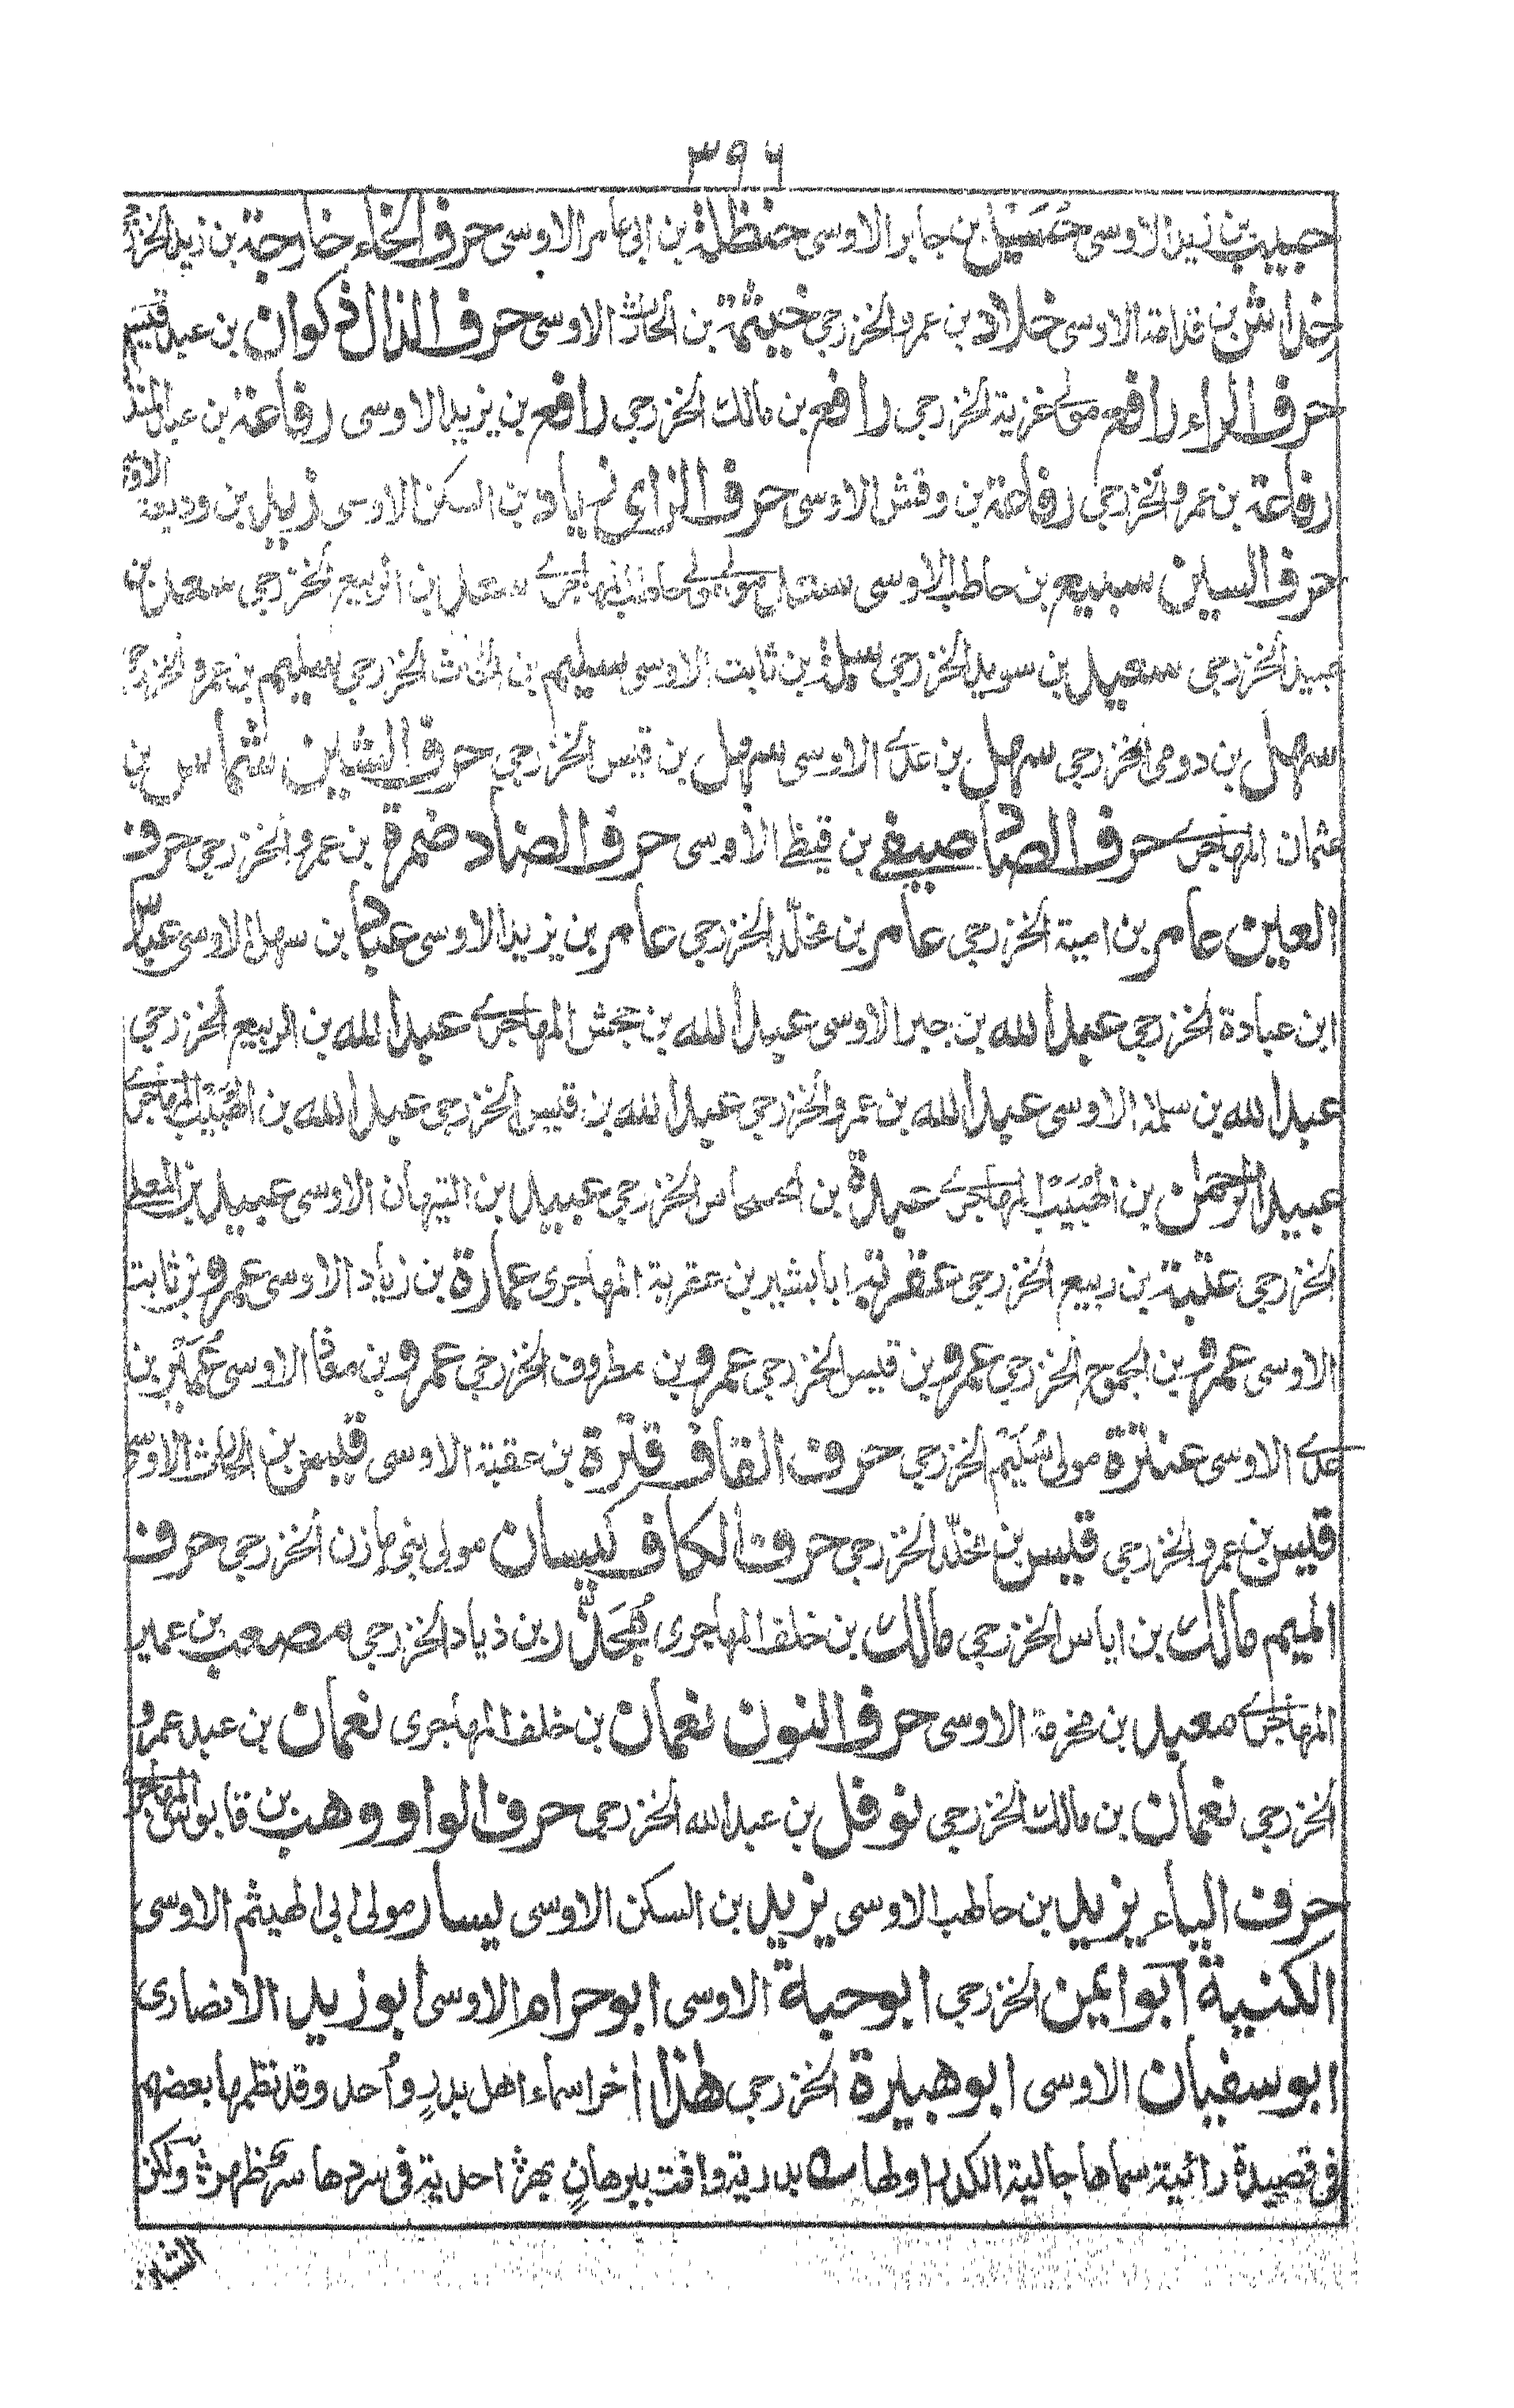 ٣٩٦
حبيب بن زيد الاوسى حُسَيل بن جابر الاوسى حنظلة بن ابى عامر الاوسى حرف الخاء خارجة بن زيد الخزرجى
خداش بن قدامة الاوسى خلاد بن عمرو الخزرجى خيثمة بن الحارث الاوسى حرف الذال ذكوان بن عبد قيس
حرف الراء رافع مولى غزية الخزرجى رافع بن مالك الخزرجى رافع بن يزيد الاوسى رفاعة بن عبد المنذر
الاوسى
رفاعة بن عمرو الخزرجى رفاعة بن وقش الاوسى حرف الزاى زياد بن السكن الاوسى زيد بن وديعة
حرف السين سبيع بن حاطب الاوسى سعد مولى حاطب المهاجرى سعد بن الربيع الخزرجى سعد بن
عبيد الخزرجى سعيد بن سويد الخزرجى سلمة بن ثابت الاوسى سليم بن الحارث الخزرجى سليم بن عمرو الخزرجى
سهل بن رومى الخزرجى سهل بن عدى الاوسى سهل بن قيس الخزرجى حرف الشين شماس بن
عثمان المهاجرى حرف الصاد صيفى بن قيظى الاوسى حرف الضاد ضمرة بن عمرو الخزرجى حرف
العين عامر بن امية الخزرجى عامر بن مخلّد الخزرجى عامر بن يزيد الاوسى عباد بن سهل الاوسى عباس
ابن عبادة الخزرجى عبد الله بن جبر الاوسى عبد الله بن جحش المهاجرى عبد الله بن الربيع الخزرجى
عبد الله بن سلمة الاوسى عبد الله بن عمرو الخزرجى عبد الله بن قيس الخزرجى عبد الله بن الهُبَيْب المهاجرى
عبيد الرحمان بن الهُبَيْب المهاجرى عبدة بن الحسحاس الخزرجى عبيد بن التيهان الاوسى عبيد بن المعلى
الخزرجى عتبة بن ربيع الخزرجى عقربة ابا بشير بن عقربة المهاجرى عمارة بن زياد الاوسى عمرو بن ثابت
الاوسى عمرو بن الجموح الخزرجى عمرو بن قيس الخزرجى عمرو بن مطروف الخزرجى عمرو بن معاذ الاوسى عُمَيْر بن
عدى الاوسى عنترة مولى سُلَيْم الخزرجى حرف القاف قرة بن عقبة الاوسى قيس بن الحارث الاوسى
قيس بن عمرو الخزرجى قيس بن مخلّد الخزرجى حرف الكاف كيسان مولى بنى مازن الخزرجى حرف
الميم مالك بن اياس الخزرجى مالك بن خلف المهاجرى المُجَذَّر بن ذياد الخزرجى مصعب بن عمير
المهاجرى معبد بن مخرمة الاوسى حرف النون نعمان بن خلف المهاجرى نعمان بن عبد عمرو
الخزرجى نعمان بن مالك الخزرجى نوفل بن عبد الله الخزرجى حرف الواو وهب بن قابوس المهاجرى
حرف الياء يزيد بن حاطب الاوسى يزيد بن السكن الاوسى يسار مولى ابى الهيثم الاوسى
الكنية ابو ايمن الخزرجى ابو حبة الاوسى ابو حرام الاوسى ابو زيد الانصارى
ابو سفيان الاوسى ابو هبيرة الخزرجى هٰذا اخر اسماء اهل بدرٍ واُحد وقد نظمها بعضهم
فى قصيدة رائية سماها جالية الكدر اولها بدرية وافت ببرهانٍ احدية فى سردها ولكن